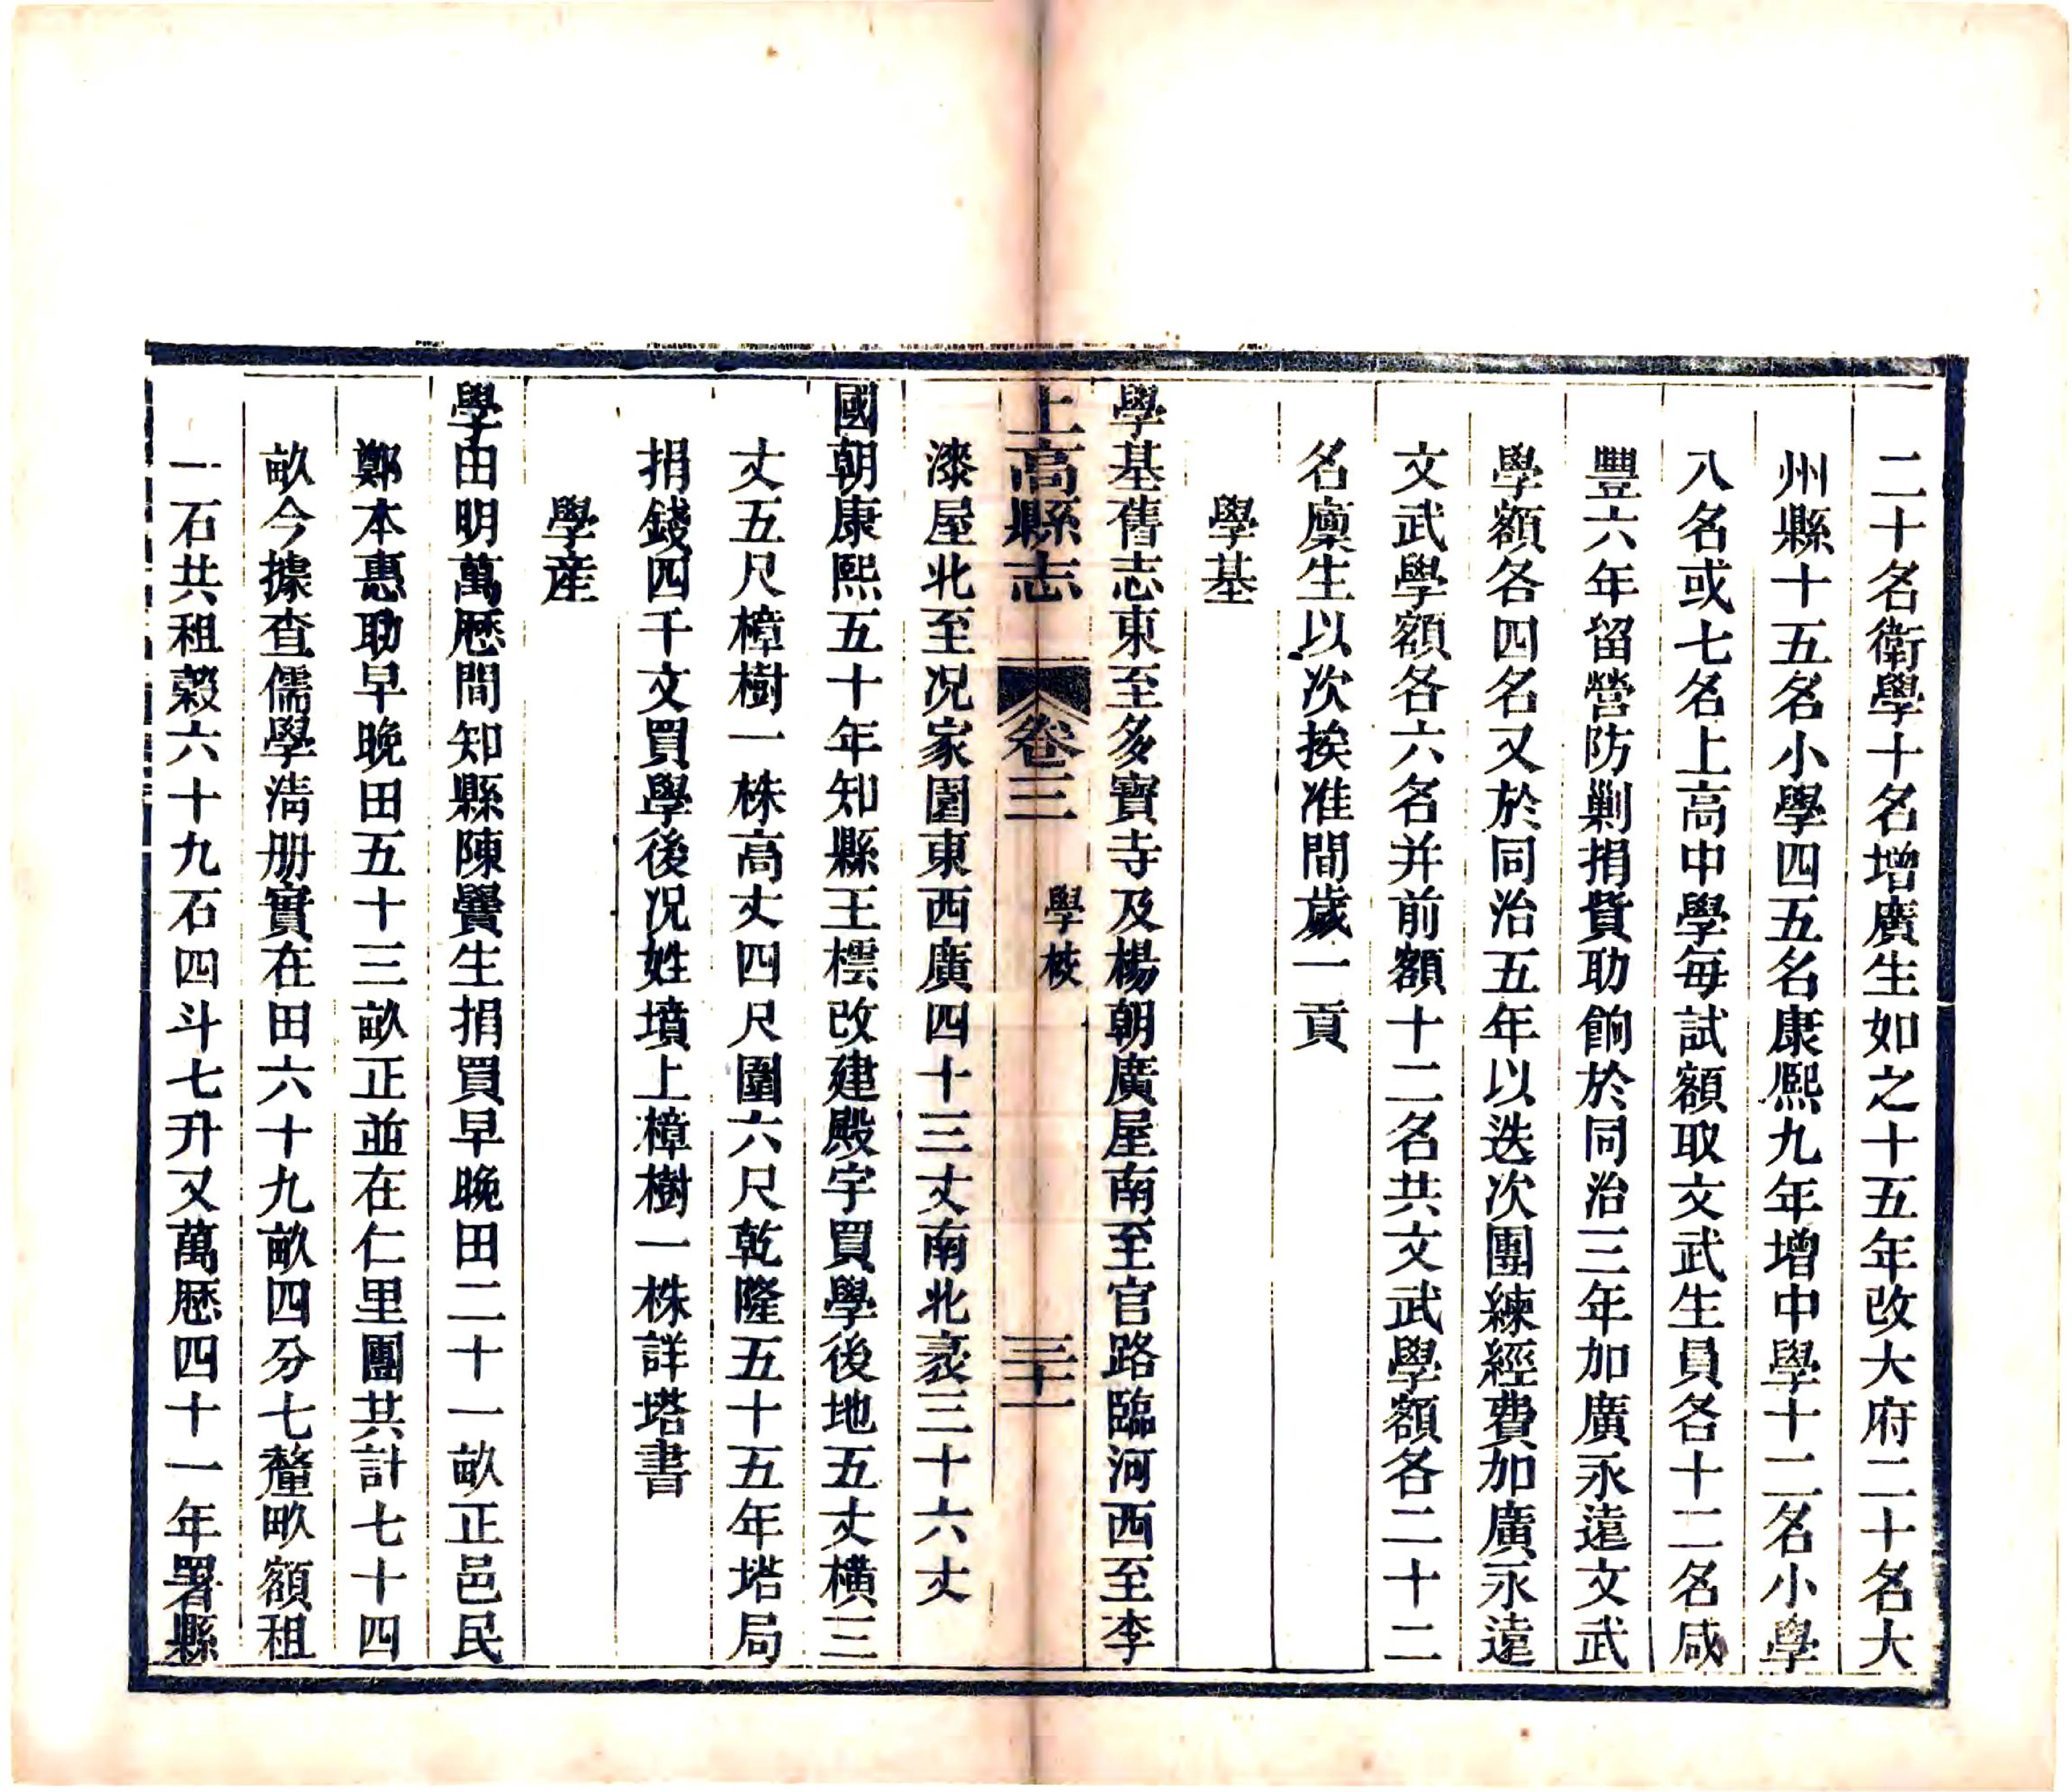 二十名衛學十名增廣生如之十五年改大府二十名大
州縣十五名小學四五名康熙九年增中學十二名小學
八名或七名上高中學每試額取文武生員各十二名咸
豐六年留營防剿捐貲助餉於同治三年加廣永遠文武
學額各四名又於同治五年以迭次團練經費加廣永遠
文武學額各六名并前額十二名共文武學額各二十二
名廩生以次挨准間歲一貢
學基
學基舊志東至多寶寺及楊朝廣屋南至官路臨河西至李
上高縣志
卷三
學校
三十一
漆屋北至况家園東西廣四十三丈南北袤三十六丈
國朝康熙五十年知縣王橒改建殿宇買學後地五丈橫三
丈五尺樟樹一株高丈四尺圍六尺乾隆五十五年塔局
捐錢四千文買學後况姓墳上樟樹一株詳塔書
學産
學田明萬歷間知縣陳爨生捐買早晚田二十一畝正邑民
鄭本惠助早晚田五十三畝正並在仁里團共計七十四
畝今據查儒學淸册實在田六十九畝四分七釐畝額租
一石共租榖六十九石四斗七升又萬歷四十一年署縣